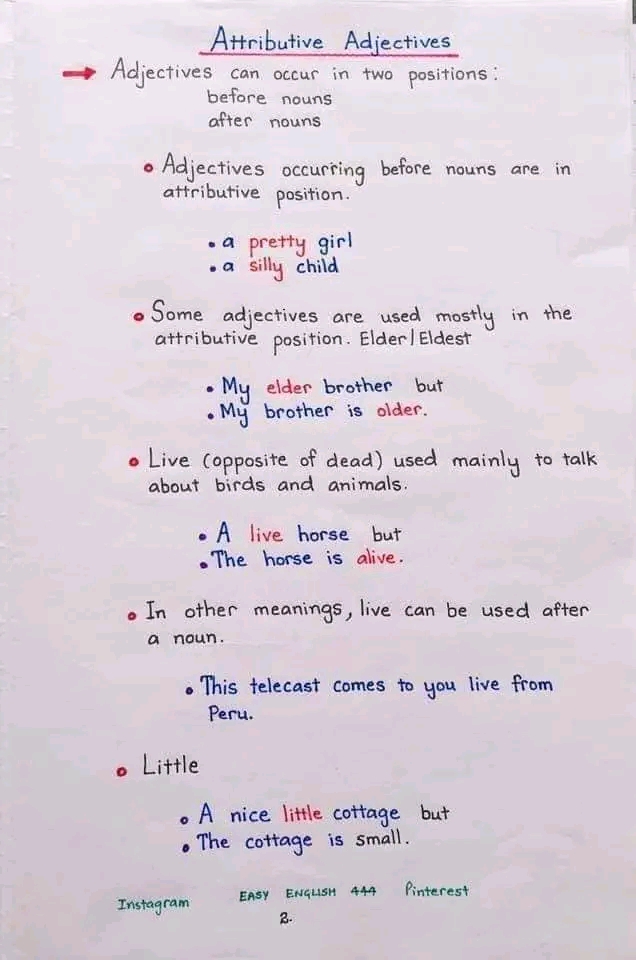 Attributive Adjectives
→ Adjectives can occur in two positions:
before nouns
after nouns
Adjectives occurring before nouns are in
attributive position.
• a pretty girl
• a silly child
Some adjectives are used mostly in the
attributive position. Elder/Eldest
• My elder brother but
• My brother is older.
Live (opposite of dead) used mainly to talk
about birds and animals.
• A live horse but
• The horse is alive.
In other meanings, live can be used after
a noun.
• This telecast comes to you live from
Peru.
Little
• A nice little cottage but
• The cottage is small.
Instagram EASY ENGLISH 444 Pinterest
2.